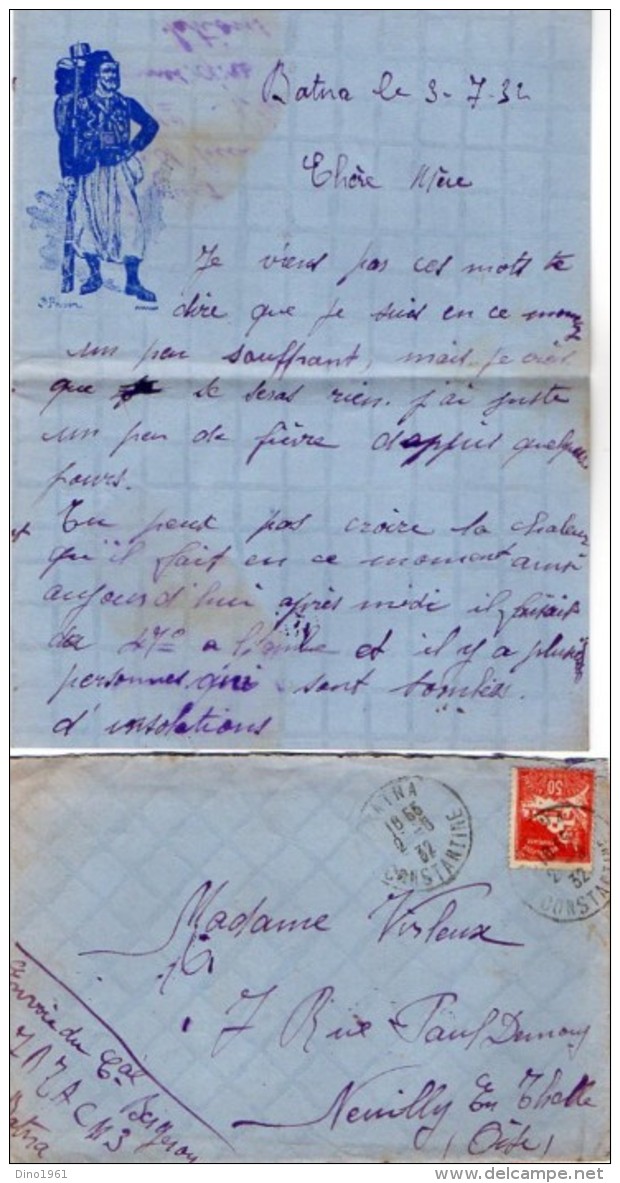 Batna le 3-7-32
Chère Mère
Je viens par ces mots te
dire que je suis en ce moment
un peu souffrant, mais je crois
que se seras rien. j'ai juste
un peu de fièvre deppuis quelques
jours.
Tu peux pas croire la chaleur
qu'il fait en ce moment ainsi
aujourd'hui après midi il faisait
47° a l'ombre et il y a plusieurs
personnes qui sont tombées
d'insolations
BATNA
18 55
2-8
32
CONSTANTINE
50
CONSTANTINE
Madame
7 Rue Paul
Neuilly En Thelle
(Oise)
Envoie du Cal Bergeron
Batna
Dino1961
delcampe.net